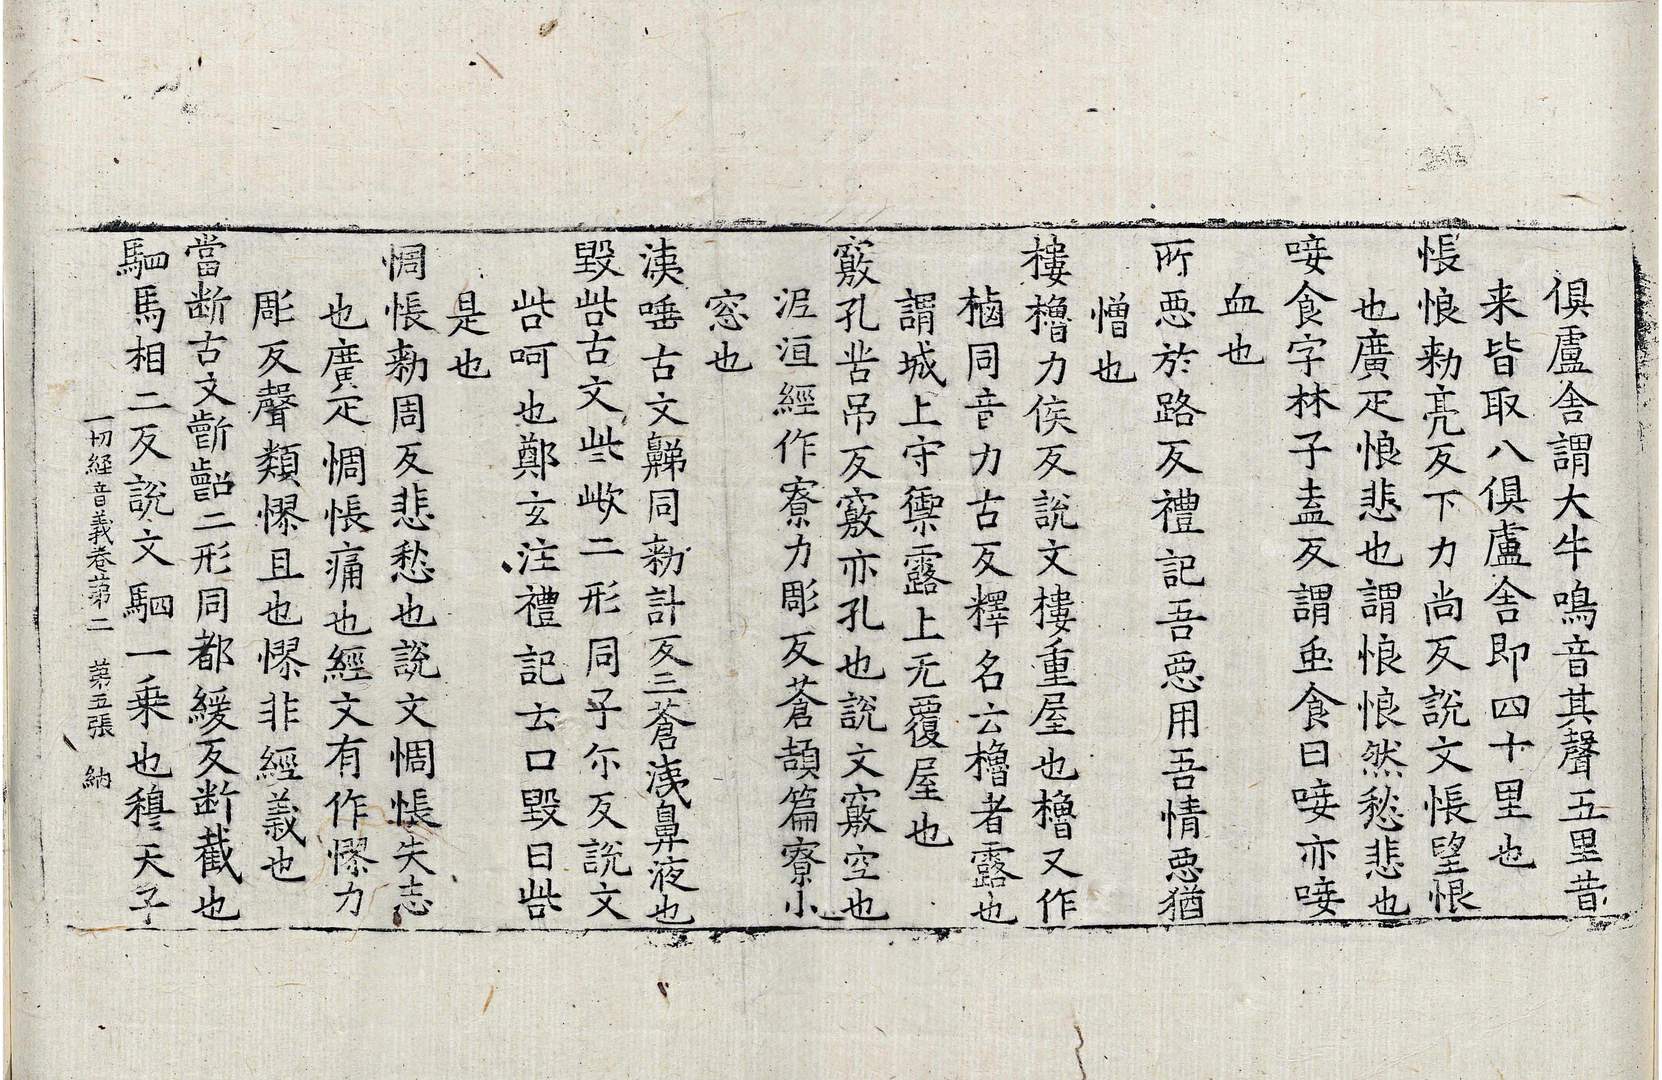 俱盧舍謂大牛鳴音其聲五里昔
来皆取八俱盧舍即四十里也
悵悢勑亮反下力尚反說文悵望恨
也廣疋悢悲也謂悢悢然愁悲也
唼食字林子盍反謂䖝食曰唼亦唼
血也
所惡於路反禮記吾惡用吾情惡猶
憎也
樓櫓力侯反說文樓重屋也櫓又作
樐同音力古反釋名云櫓者露也
謂城上守禦露上无覆屋也
竅孔苦吊反竅亦孔也說文竅空也
泥洹經作寮力彫反蒼頡篇寮小
窓也
洟唾古文𪖦同勑計反三蒼洟鼻液也
毀呰古文些㱔二形同子尒反說文
呰呵也鄭玄注禮記云口毀曰呰
是也
惆悵勑周反悲愁也說文惆悵失志
也廣疋惆悵痛也經文有作憀力
彫反聲類憀且也憀非經義也
當斷古文𣃔𠸿二形同都緩反断截也
駟馬相二反說文駟一乗也穆天子
一切經音義卷第二　第五張　納